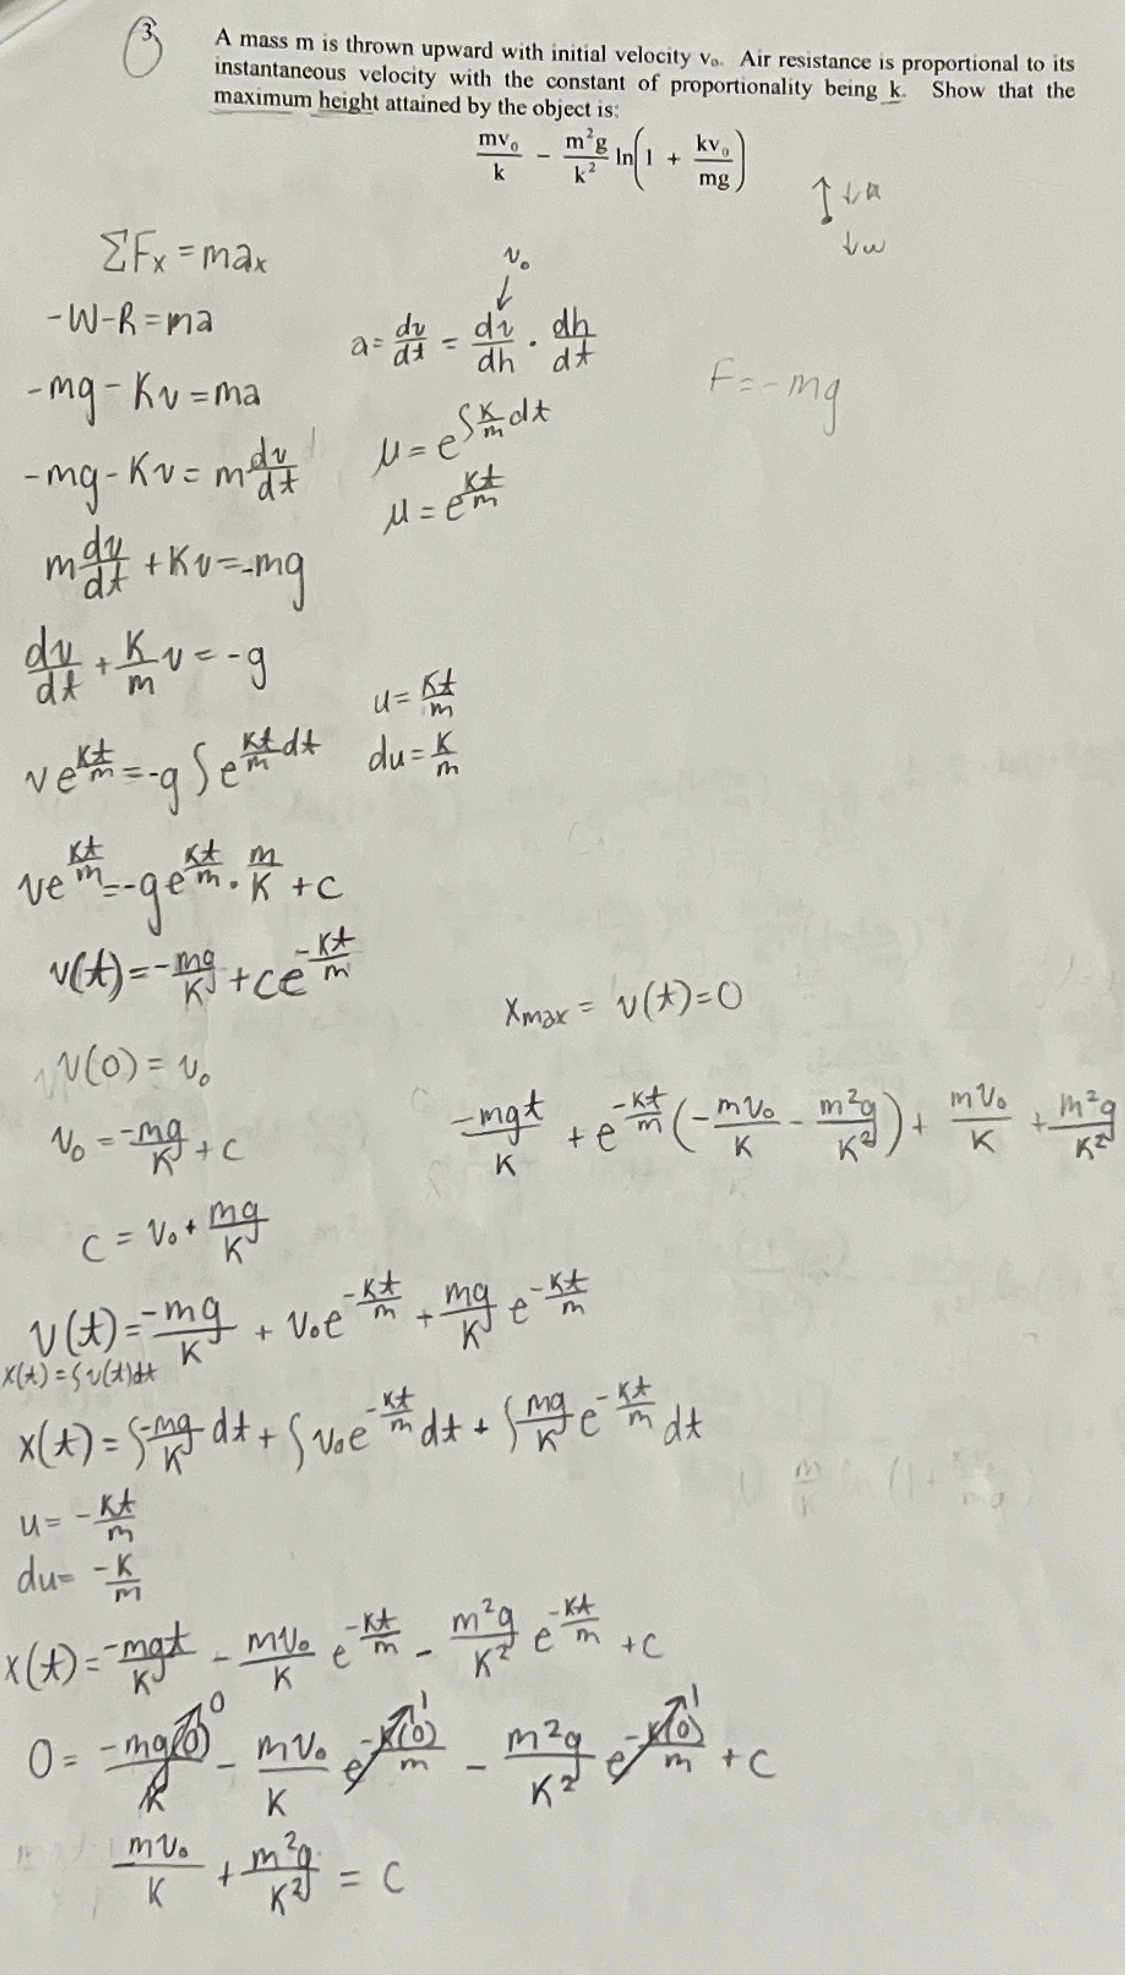 3
A mass m is thrown upward with initial velocity v₀. Air resistance is proportional to its
instantaneous velocity with the constant of proportionality being k. Show that the
maximum height attained by the object is:
mv₀/k - m²g/k² ln(1 + kv₀/mg)
↑ ↓R
↓w
ΣFx = max
v₀
↓
-W-R=ma
a = dv/dt = dv/dh · dh/dt
-mg-Kv=ma
F=-mg
μ = e^∫K/m dt
-mg-Kv = m dv/dt
μ = e^Kt/m
m dv/dt + Kv = -mg
dv/dt + K/m v = -g
u = Kt/m
ve^Kt/m = -g∫e^Kt/m dt
du = K/m
ve^Kt/m = -ge^Kt/m · m/K + c
v(t) = -mg/K + ce^-Kt/m
Xmax = v(t)=0
v(0) = v₀
-mgt/K + e^-Kt/m (-mv₀/K - m²g/K²) + mv₀/K + m²g/K²
v₀ = -mg/K + c
c = v₀ + mg/K
v(t) = -mg/K + v₀e^-Kt/m + mg/K e^-Kt/m
x(t) = ∫v(t)dt
x(t) = ∫-mg/K dt + ∫v₀e^-Kt/m dt + ∫mg/K e^-Kt/m dt
u = -Kt/m
du = -K/m
x(t) = -mgt/K - mv₀/K e^-Kt/m - m²g/K² e^-Kt/m + c
0 = -mg(0)/K ↗0 - mv₀/K e^-K(0)/m ↗1 - m²g/K² e^-K(0)/m ↗1 + c
mv₀/K + m²g/K² = c